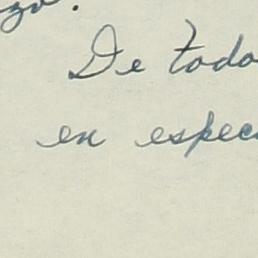 De todo
en espec